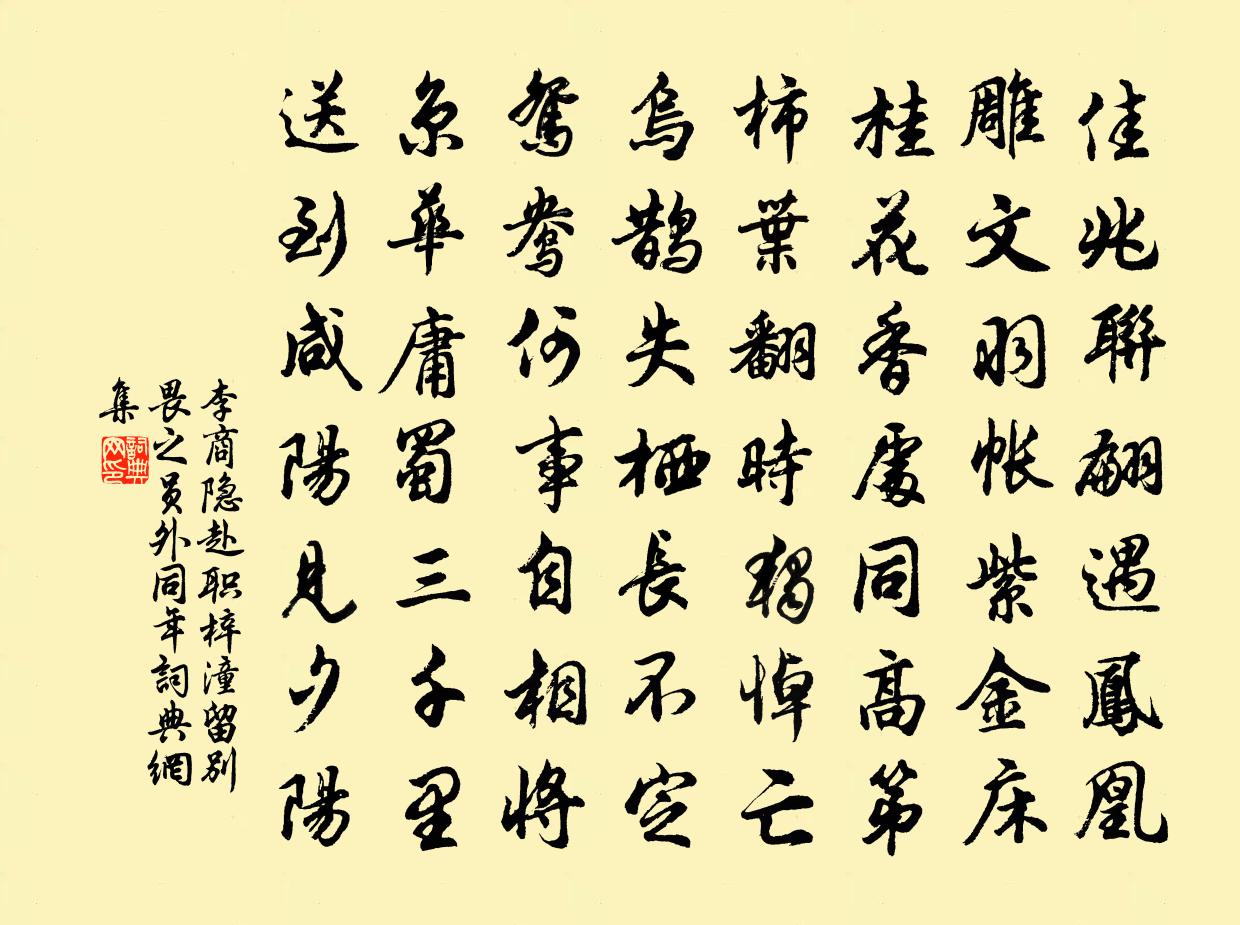 佳兆聯翩遇鳳凰
雕文羽帐紫金床
桂花香處同高第
柿葉翻時獨悼亡
烏鵲失栖長不定
鴛鴦何事自相將
京華庸蜀三千里
送到咸陽見夕陽
李商隐赴职梓潼留别
畏之员外同年詞典網
集
詞典網印